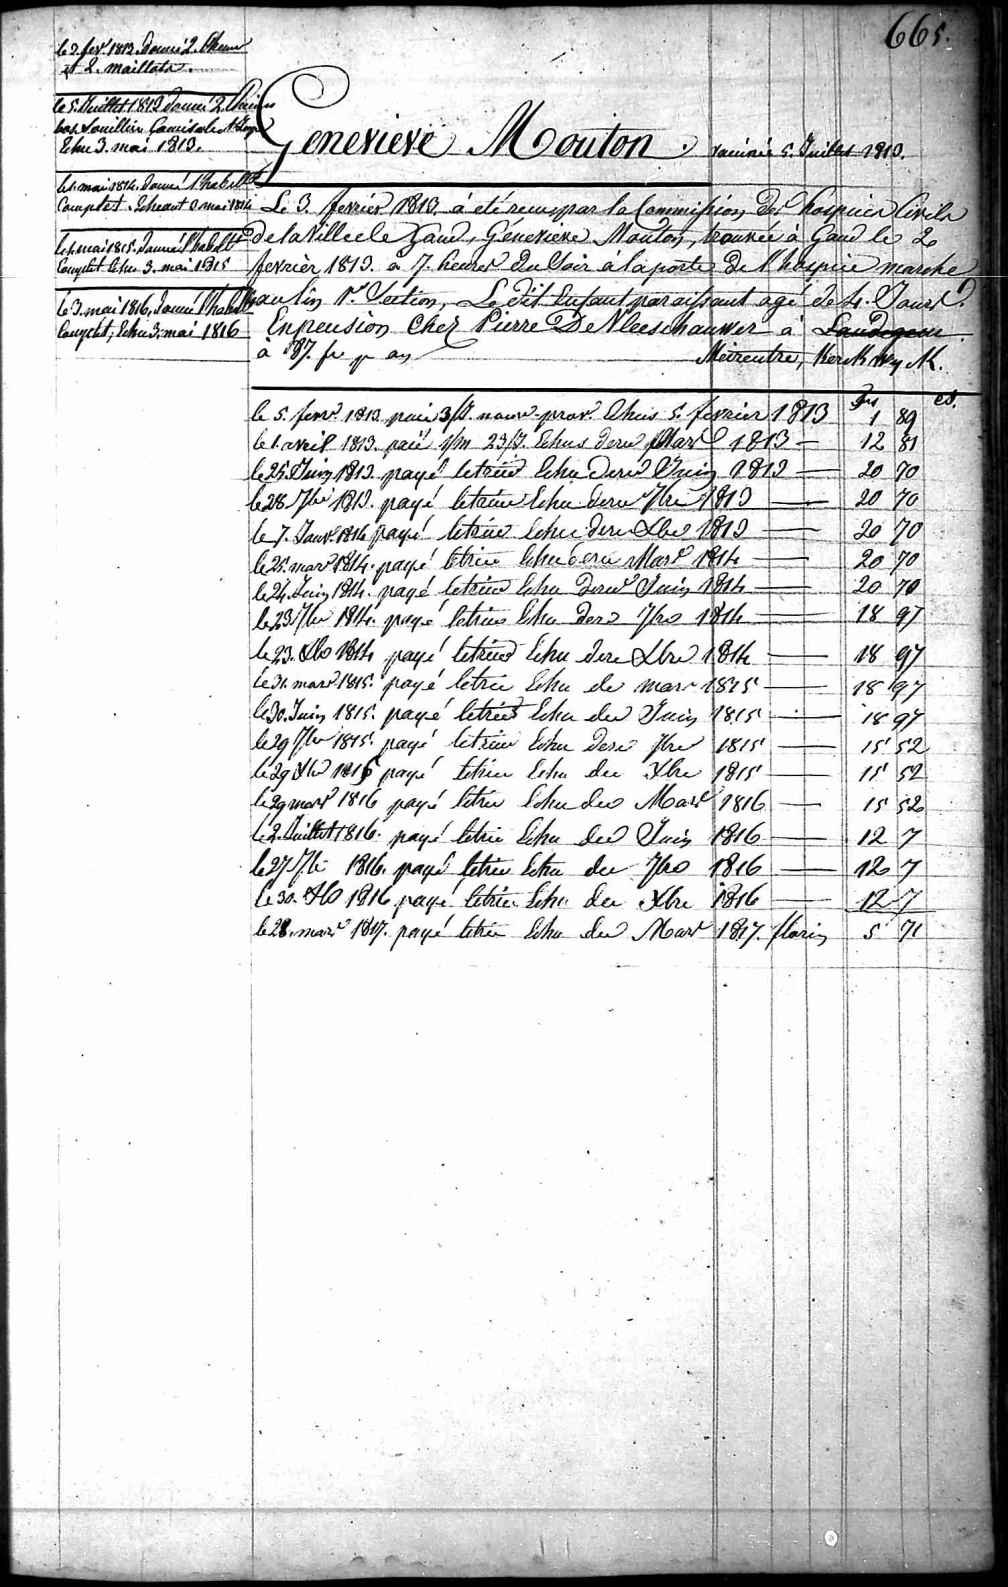 665.
le 3. fevr 1813. Donné 2. Chem
et 2. maillots.
le 5. Juillet 1813 donné 2.
bas, Souillier Camisole
Echu 3. mai 1813.
le 1. mai 1814. Donné l'habillt
Complet. Echeant 3 mai 1814
le 1. mai 1815. donné l'habillt
Complet Echu 3. mai 1815
le 3. mai 1816, donné l'habill
Complet, Echu 3. mai 1816
Genevieve Mouton. vaccinée 5. Juillet 1813.
Le 3. fevrier 1813. à été reçu par la Commission des hospices Civils
de la Ville de Gand, Genevieve Mouton, trouvée à Gand le 2
fevrièr 1813. à 7. heures du Soir à la porte de l'hospice marché
au lin 1r. Section, Le dit Enfant paraissant agé de 4. Jours.
En pension Chez Pierre De Vleeschauwer à
à 87. fr p an Meirentre, Kerckwyck.
frs cs.
le 5. fevr. 1813. paié 3/J. nour. prov. Echus 5. fevrier 1813 1 89
le 1. avril 1813. paié 1/m 23/J. Echus dern Mars 1813 — 12 81
le 25. Juin 1813. payé le trim Echu dern Juin 1813 — 20 70
le 28. 7bre 1813. payé le trim Echu dern 7bre 1813 — 20 70
le 7. Janv. 1814 payé le trim Echu dern Xbre 1813 — 20 70
le 25. mars 1814. payé le trim Echu dern Mars 1814 — 20 70
le 24. Juin 1814. payé le trim Echu dern Juin 1814 — 20 70
le 23 7bre 1814. payé le trim Echu der 7bre 1814 — 18 97
le 23. Xbre 1814 payé le trim Echu dern Xbre 1814 — 18 97
le 31. mars 1815. payé le trim Echu de mars 1815 — 18 97
le 30. Juin 1815. payé le trim Echu der Juin 1815 — 18 97
le 29 7bre 1815. payé le trim Echu der 7bre 1815 — 15 52
le 29 Xbre 1815 payé le trim Echu der Xbre 1815 — 15 52
le 29 mars 1816 payé le trim Echu der Mars 1816 — 15 52
le 2. Juillet 1816. payé le trim Echu der Juin 1816 — 12 7
le 27 7bre 1816. payé le trim Echu der 7bre 1816 — 12 7
le 30. Xbre 1816 payé le trim Echu der Xbre 1816 — 12 7
le 28. mars 1817. payé le trim Echu der Mars 1817. florins 5 71